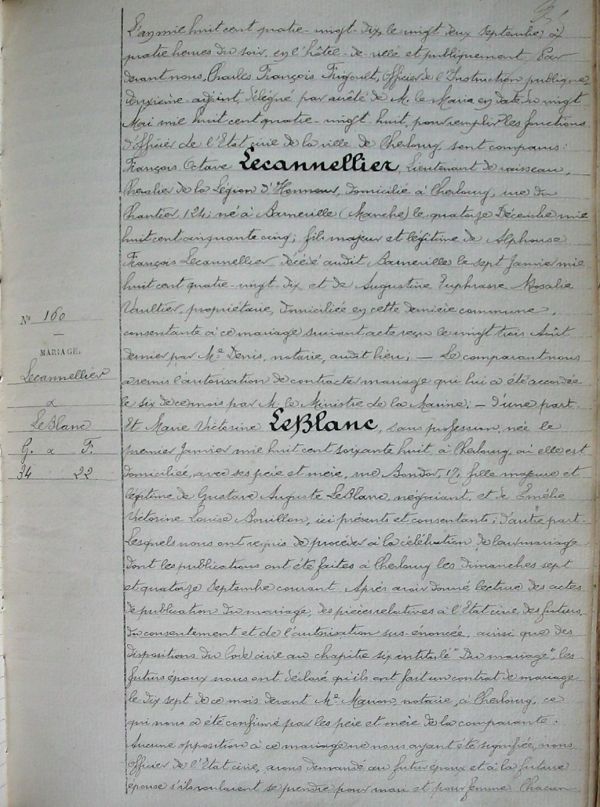 L'an mil huit cent quatre-vingt-dix, le vingt deux Septembre, à
quatre heures du soir, en l'hôtel-de-ville et publiquement, Par
devant nous, Charles François Frigoult, Officier de l'Instruction publique
deuxième adjoint, délégué par arrêté de M. le Maire en date du vingt
Mai mil huit cent quatre-vingt-huit, pour remplir les fonctions
d'Officier de l'Etat civil de la ville de Cherbourg sont comparus:
François Octave Lecannellier, Lieutenant de vaisseau,
Chevalier de la Légion d'Honneur, domicilié à Cherbourg, rue du
Chantier, 124, né à Barneville (Manche) le quatorze Décembre mil
huit cent cinquante cinq; fils majeur et légitime de Alphonse
François Lecannellier, décédé audit Barneville le sept Janvier mil
huit cent quatre-vingt dix et de Augustine Euphrasie Rosalie
Vaultier, propriétaire, domiciliée en cette dernière commune,
consentante à ce mariage suivant acte reçu le vingt trois Août
dernier par Me Denis, notaire, audit lieu; — Le comparant nous
a remis l'autorisation de contracter mariage qui lui a été accordée
le six de ce mois par M. le Ministre de la Marine; — d'une part.
Et Marie Victorine LeBlanc, sans profession, née le
premier Janvier mil huit cent soixante huit, à Cherbourg, où elle est
domiciliée, avec ses père et mère, rue Bondor, 17, fille majeure et
légitime de Gustave Auguste LeBlanc, négociant, et de Emélie
Victorine Louise Bouillon, ici présents et consentants; d'autre part.
Lesquels nous ont requis de procéder à la célébration de leur mariage
dont les publications ont été faites à Cherbourg les dimanches sept
et quatorze Septembre courant. Après avoir donné lecture des actes
de publication du mariage, des pièces relatives à l'Etat civil des futurs
du consentement et de l'autorisation sus-énoncée, ainsi que des
dispositions du Code civil au chapitre six intitulé "Du mariage", les
futurs époux nous ont déclaré qu'ils ont fait un contrat de mariage
le dix sept de ce mois devant Me Marion, notaire, à Cherbourg, ce
qui nous a été confirmé par les père et mère de la comparante.
Aucune opposition à ce mariage ne nous ayant été signifiée, nous,
Officier de l'Etat civil, avons demandé au futur époux et à la future
épouse s'ils voulaient se prendre pour mari et pour femme. Chacun
No 160
MARIAGE.
Lecannellier
&
LeBlanc
G. & F.
34 22